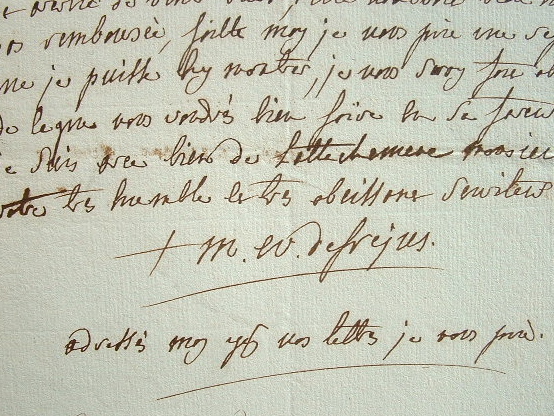 pas remboursée, faitte moy je vous prie une
que je puisse luy montrer, je vous seray fort
de ce que vous voudrés bien faire en sa faveur
je suis avec bien de l'attachement monsieur
votre tres humble et tres obeissant serviteur
+ m. ev. de frejus.
adressés moy icy vos lettres je vous prie.